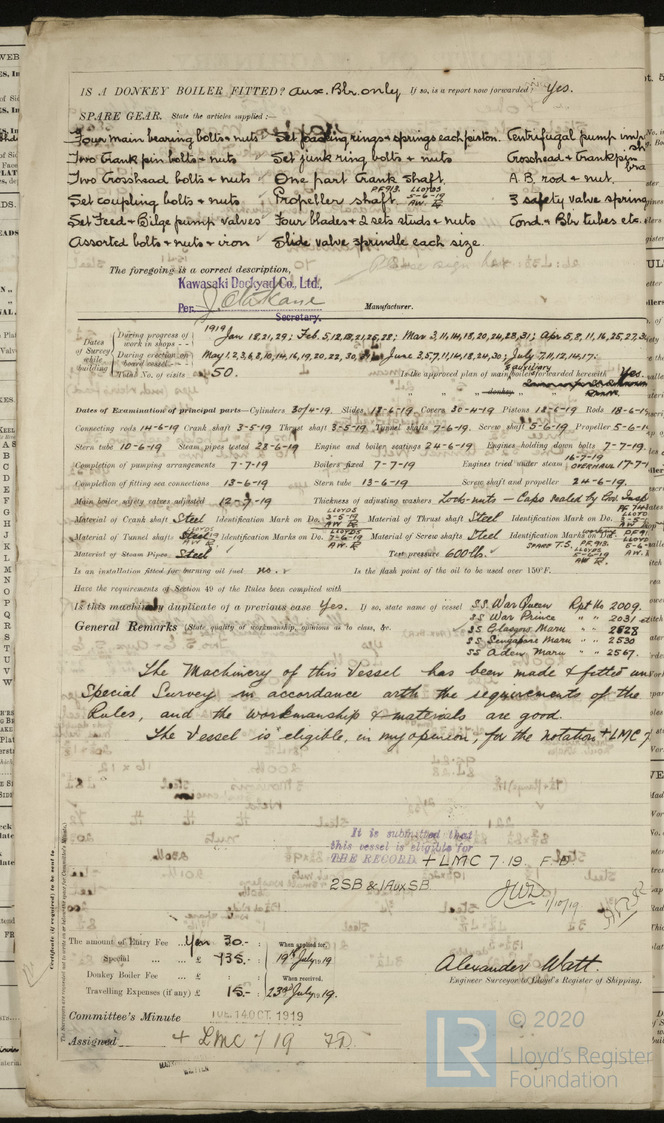 IS A DONKEY BOILER FITTED? Aux. Blr. only If so, is a report now forwarded? Yes.
SPARE GEAR. State the articles supplied:—
Four main bearing bolts & nuts Set packing rings & springs each piston. Centrifugal pump
Two Crank pin bolts & nuts Set junk ring bolts & nuts Crosshead & Crankpin
Two Crosshead bolts & nuts One part Crank Shaft A.B. rod & nut.
Set coupling bolts & nuts Propeller shaft. 3 safety valve spring
Set Feed & Bilge pump valves Four blades & 2 sets studs & nuts Cond. & Blr tubes etc.
Assorted bolts & nuts & iron Slide valve spindle each size
The foregoing is a correct description,
Kawasaki Dockyard Co., Ltd.,
Per. Manufacturer.
Secretary.
Dates of Survey while building
During progress of work in shops - - 1919 Jan 18, 21, 29; Feb. 5, 12, 18, 21, 25, 28; Mar 3, 11, 14, 18, 20, 24, 28, 31; Apr 5, 8, 11, 16, 25, 27,
During erection on board vessel - - - May 1, 2, 3, 6, 8, 10, 14, 16, 19, 20, 22, 30, June 3, 5, 7, 11, 14, 18, 24, 30; July 7, 11, 12, 14, 17:
Total No. of visits 50. Is the approved plan of main & auxiliary boiler forwarded herewith Yes.
" " " donkey " " "
Dates of Examination of principal parts—Cylinders 30/4-19. Slides 13-6-19. Covers 30-4-19 Pistons 13-6-19 Rods 18-6-19
Connecting rods 14-6-19 Crank shaft 3-5-19 Thrust shaft 3-5-19 Tunnel shafts 7-6-19. Screw shaft 5-6-19 Propeller 5-6-19
Stern tube 10-6-19 Steam pipes tested 28-6-19 Engine and boiler seatings 24-6-19 Engines holding down bolts 7-7-19.
Completion of pumping arrangements 7-7-19 Boilers fixed 7-7-19 Engines tried under steam 16-7-19 OVERHAUL 17-7
Completion of fitting sea connections 13-6-19 Stern tube 13-6-19 Screw shaft and propeller 24-6-19.
Main boiler safety valves adjusted 12-7-19 Thickness of adjusting washers Lock-nuts — Caps sealed by Gov. Insp
Material of Crank shaft Steel Identification Mark on Do. LLOYDS 3-5-19 A.W.R. Material of Thrust shaft Steel Identification Mark on Do.
Material of Tunnel shafts Steel Identification Marks on Do. LLOYDS 7-6-19 A.W.R. Material of Screw shafts Steel Identification Marks on Do.
Material of Steam Pipes Steel Test pressure 600 lbs. SPARE T.S. PF.913. LLOYDS 5-6-19 A.W.R.
Is an installation fitted for burning oil fuel no. Is the flash point of the oil to be used over 150°F.
Have the requirements of Section 49 of the Rules been complied with
Is this machinery duplicate of a previous case Yes. If so, state name of vessel SS. War Queen Rpt No 2009.
SS War Prince " " 2031
General Remarks (State quality of workmanship, opinions as to class, &c. SS Glasgow Maru " " 2528
SS Singapore Maru " " 2530
SS Aden Maru " " 2567.
The Machinery of this Vessel has been made & fitted un
Special Survey in accordance with the requirements of the
Rules, and the workmanship & materials are good.
The Vessel is eligible, in my opinion, for the notation + LMC 7
It is submitted that
this vessel is eligible for
THE RECORD. + LMC 7.19. F.D.
2SB & 1 Aux SB.
JWD 1/10/19
Certificate (if required) to be sent to
The amount of Entry Fee ... Yen 30.- : When applied for,
Special ... £ 735.- : 19th July 1919
Donkey Boiler Fee ... £ When received,
Travelling Expenses (if any) £ 15.- : 23rd July 1919.
Alexander Watt.
Engineer Surveyor to Lloyd's Register of Shipping.
Committee's Minute TUE. 14 OCT. 1919
Assigned + LMC 7 19 FD.
© 2020
LR Lloyd's Register
Foundation